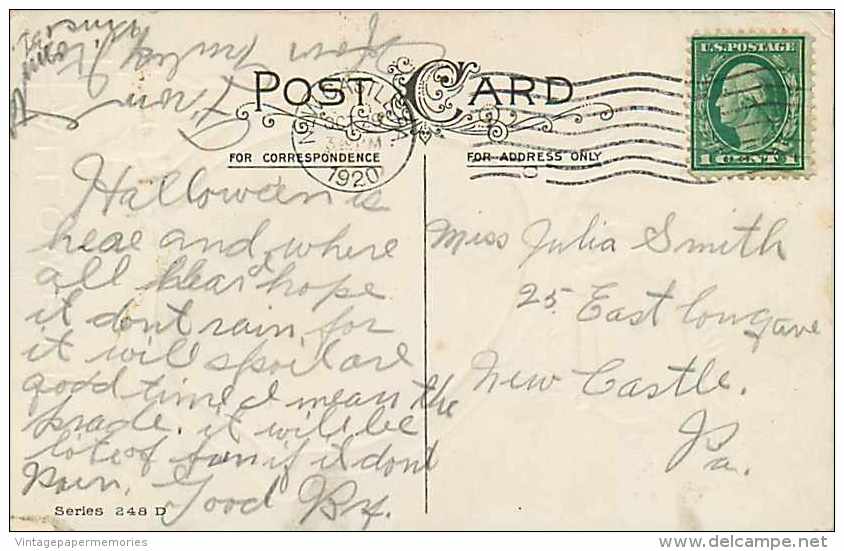 POST CARD
FOR CORRESPONDENCE
FOR ADDRESS ONLY
U.S. POSTAGE
1 CENT 1
NEW CASTLE
PM
1920
From
Halloween is
heae and where
all hear hope
it dont rain for
it will spoil are
good time I mean the
prade. it will be
lots of fun if it dont
Rain. Good By.
Miss Julia Smith
25 East Long ave
New Castle.
Pa.
Series 248 D
Vintagepapermemories
delcampe.net